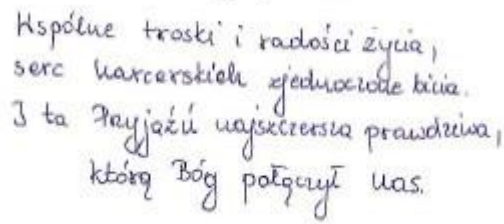 Wspólne troski i radości życia,
serc harcerskich zjednoczone bicia.
I ta Przyjaźń najszczersza prawdziwa,
którą Bóg połączył nas.